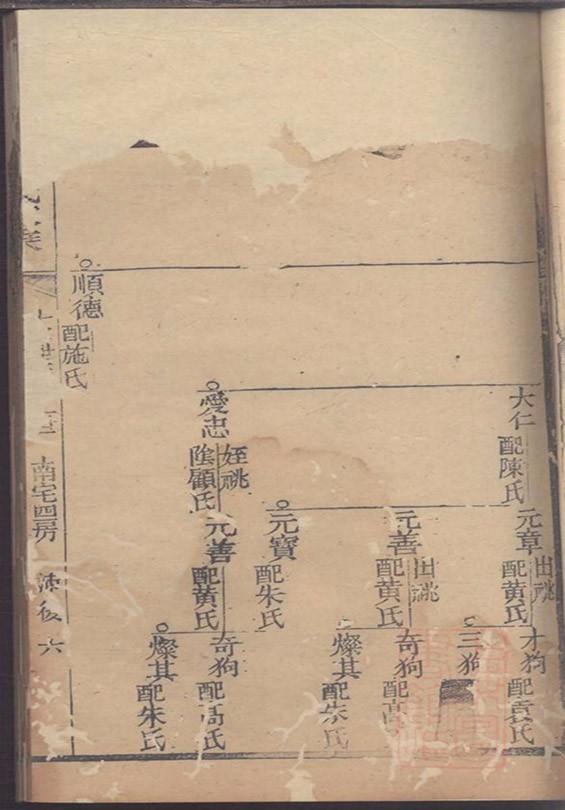 大仁
配陳氏
元章
出祧
配黄氏
才狗
配袁氏
三狗
元善
出祧
配黄氏
奇狗
配高
燦其
配朱氏
元寶
配朱氏
愛忠
姪祧
陰顧氏
元善
配黄氏
奇狗
配高氏
燦其
配朱氏
順德
配施氏
南宅四房
六